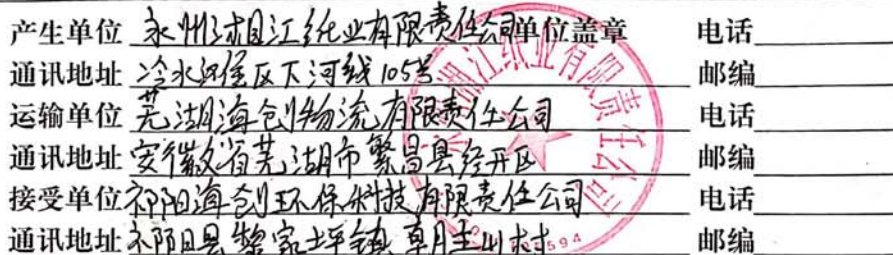 产生单位 永州湘江纸业有限责任公司单位盖章 电话
通讯地址 冷水滩区下河线105号 邮编
运输单位 芜湖海创物流有限责任公司 电话
通讯地址 安徽省芜湖市繁昌县经开区 邮编
接受单位 祁阳海创环保科技有限责任公司 电话
通讯地址 祁阳县黎家坪镇 村 邮编
湘江纸业有限责任公司